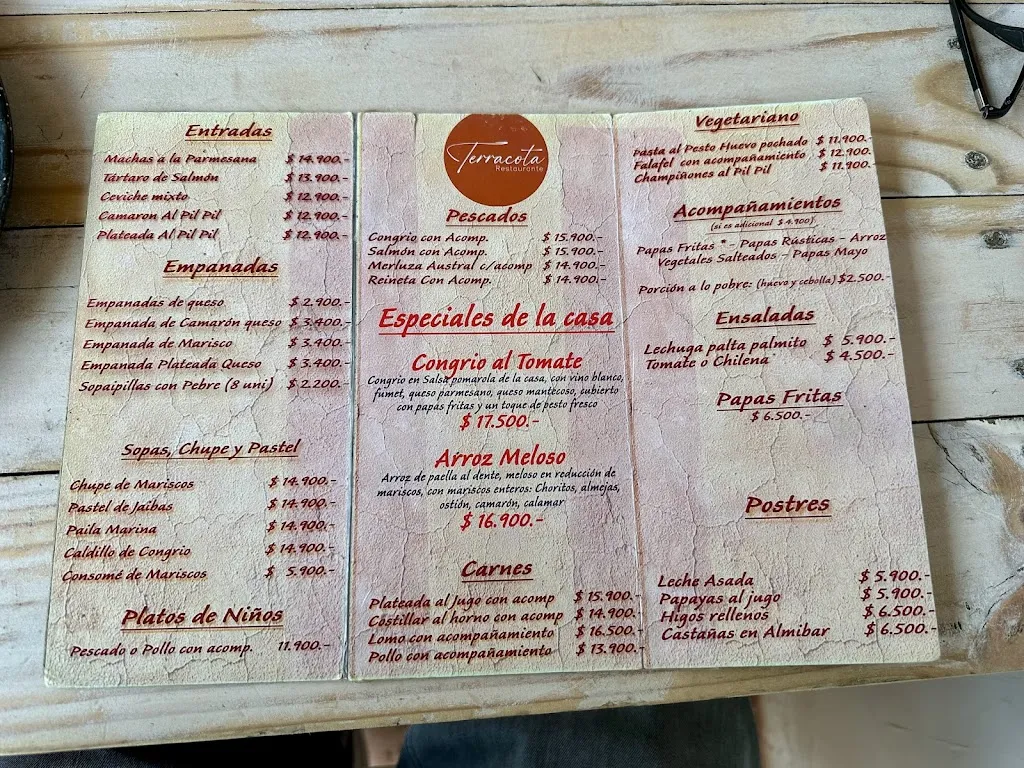 Entradas
Machas a la Parmesana $ 14.900.-
Tártaro de Salmón $ 13.900.-
Ceviche mixto $ 12.900.-
Camaron Al Pil Pil $ 12.900.-
Plateada Al Pil Pil $ 12.900.-
Empanadas
Empanadas de queso $ 2.900.-
Empanada de Camarón queso $ 3.400.-
Empanada de Marisco $ 3.400.-
Empanada Plateada Queso $ 3.400.-
Sopaipillas con Pebre (8 uni) $ 2.200.-
Sopas, Chupe y Pastel
Chupe de Mariscos $ 14.900.-
Pastel de Jaibas $ 14.900.-
Paila Marina $ 14.900.-
Caldillo de Congrio $ 14.900.-
Consomé de Mariscos $ 5.900.-
Platos de Niños
Pescado o Pollo con acomp. 11.900.-
Terracota
Restaurante
Pescados
Congrio con Acomp. $ 15.900.-
Salmón con Acomp. $ 15.900.-
Merluza Austral c/acomp $ 14.900.-
Reineta Con Acomp. $ 14.900.-
Especiales de la casa
Congrio al Tomate
Congrio en Salsa pomarola de la casa, con vino blanco,
fumet, queso parmesano, queso mantecoso, cubierto
con papas fritas y un toque de pesto fresco
$ 17.500.-
Arroz Meloso
Arroz de paella al dente, meloso en reducción de
mariscos, con mariscos enteros: Choritos, almejas,
ostión, camarón, calamar
$ 16.900.-
Carnes
Plateada al Jugo con acomp $ 15.900.-
Costillar al horno con acomp $ 14.900.-
Lomo con acompañamiento $ 16.500.-
Pollo con acompañamiento $ 13.900.-
Vegetariano
Pasta al Pesto Huevo pochado $ 11.900.-
Falafel con acompañamiento $ 12.900.-
Champiñones al Pil Pil $ 11.900.-
Acompañamientos
(si es adicional $ 4.900).
Papas Fritas * - Papas Rústicas - Arroz
Vegetales Salteados - Papas Mayo
Porción a lo pobre: (huevo y cebolla) $2.500.-
Ensaladas
Lechuga palta palmito $ 5.900.-
Tomate o Chilena $ 4.500.-
Papas Fritas
$ 6.500.-
Postres
Leche Asada $ 5.900.-
Papayas al jugo $ 5.900.-
Higos rellenos $ 6.500.-
Castañas en Almibar $ 6.500.-